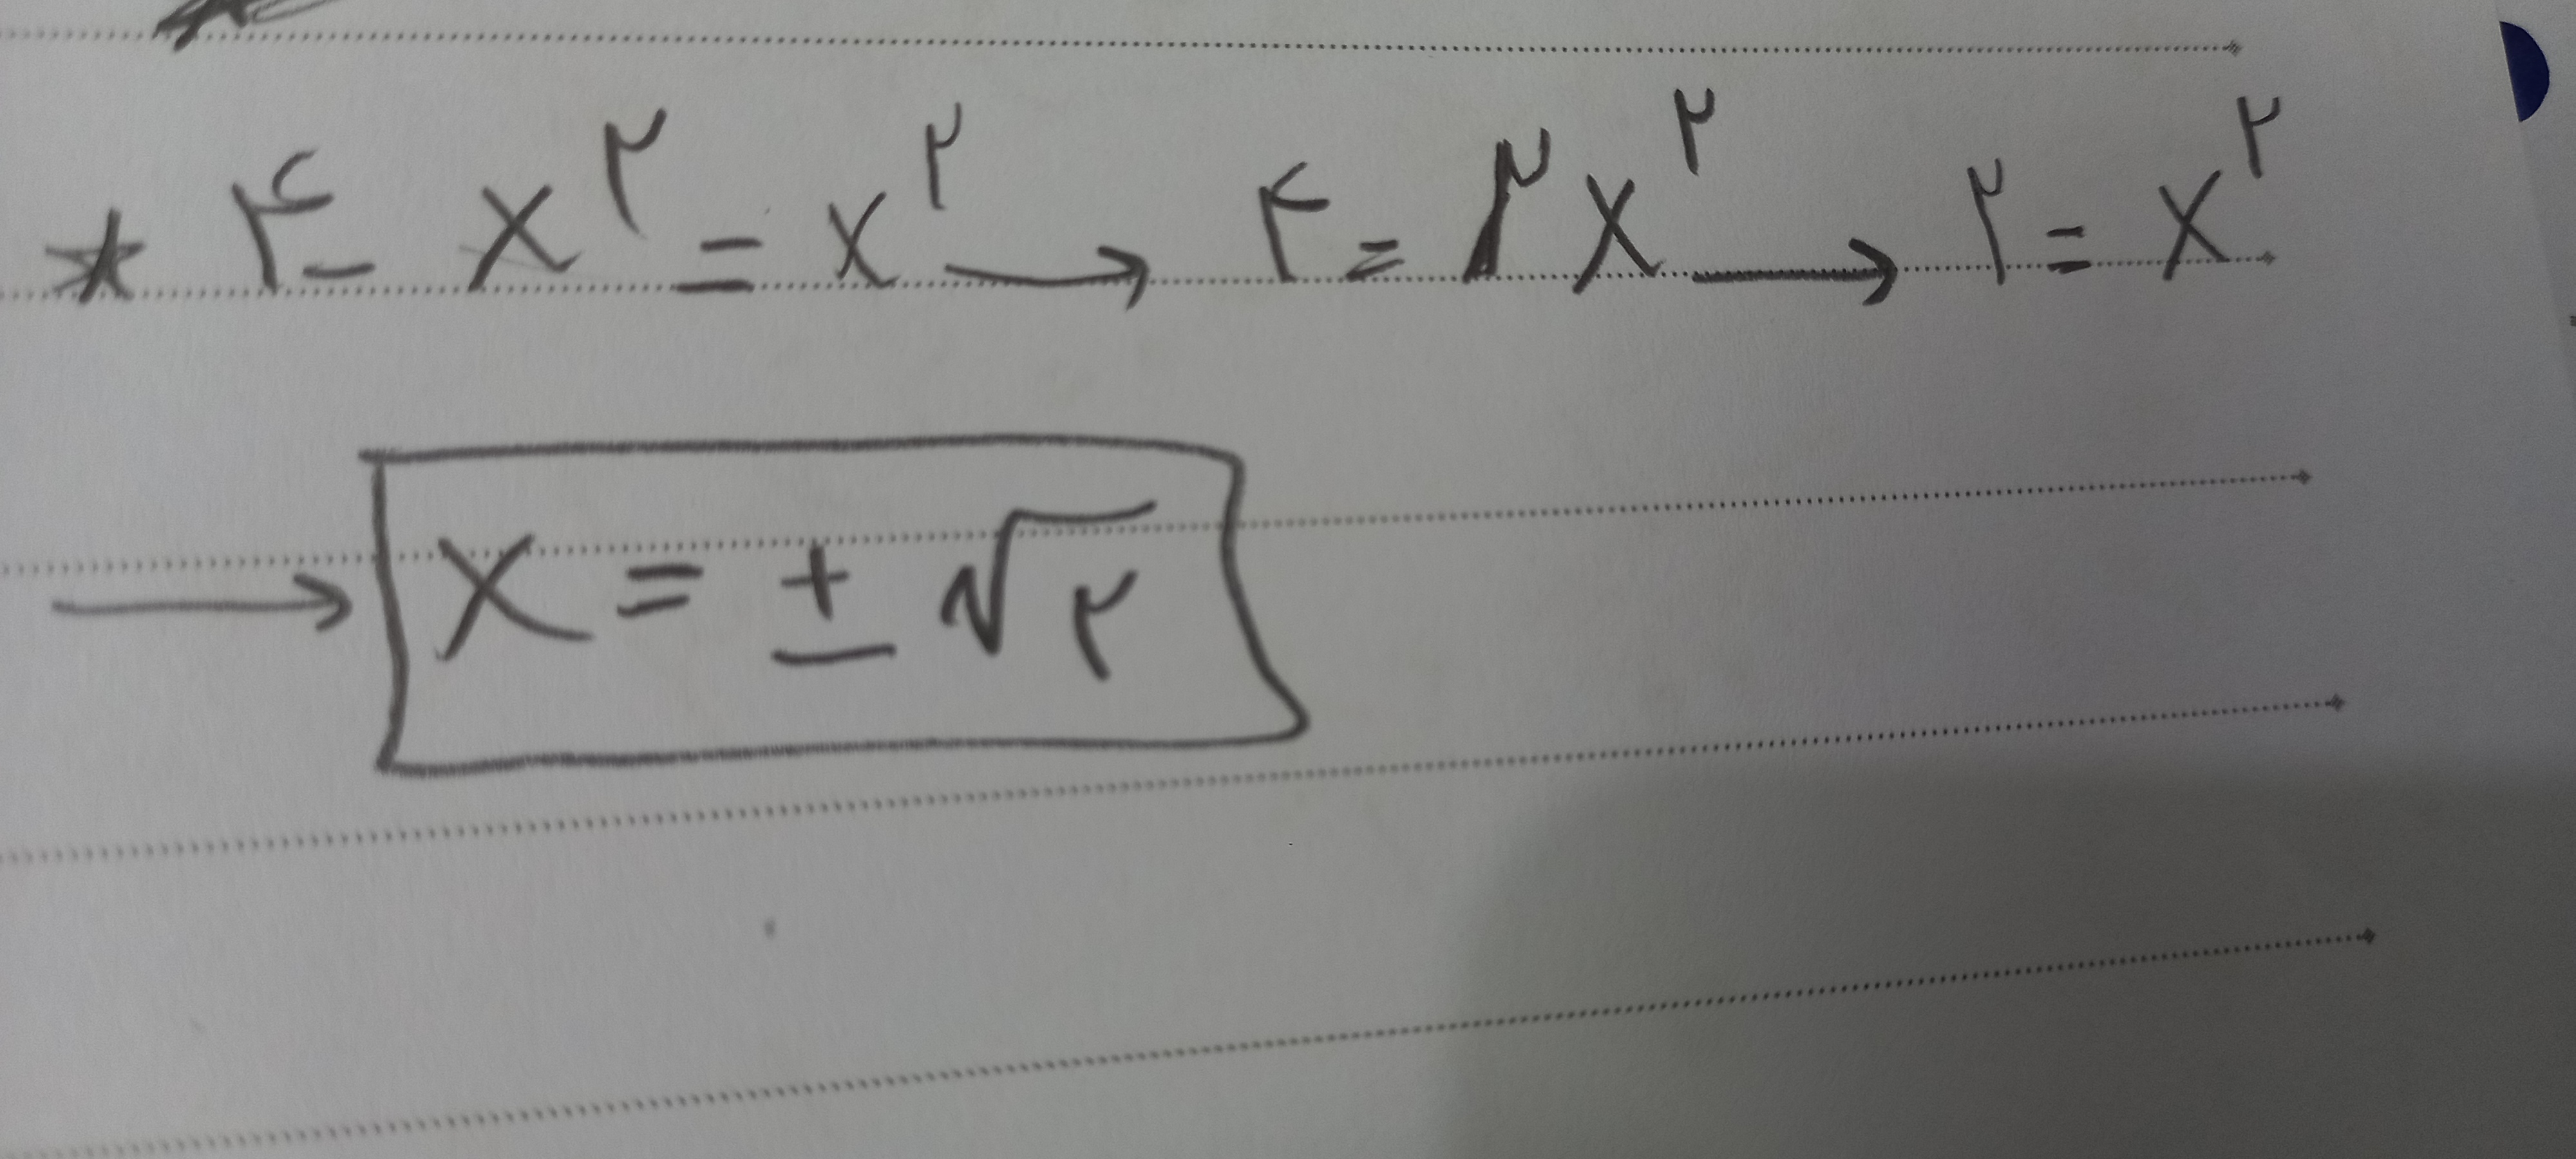 * ۴ - x^۲ = x^۲ → ۴ = ۲x^۲ → ۲ = x^۲
→ x = ± √۲